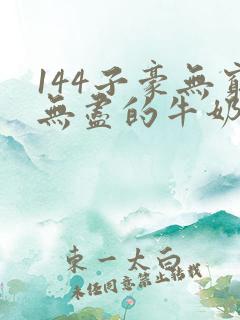 144子豪無窮
無盡的牛奶
東一太白
未經同意禁止轉載